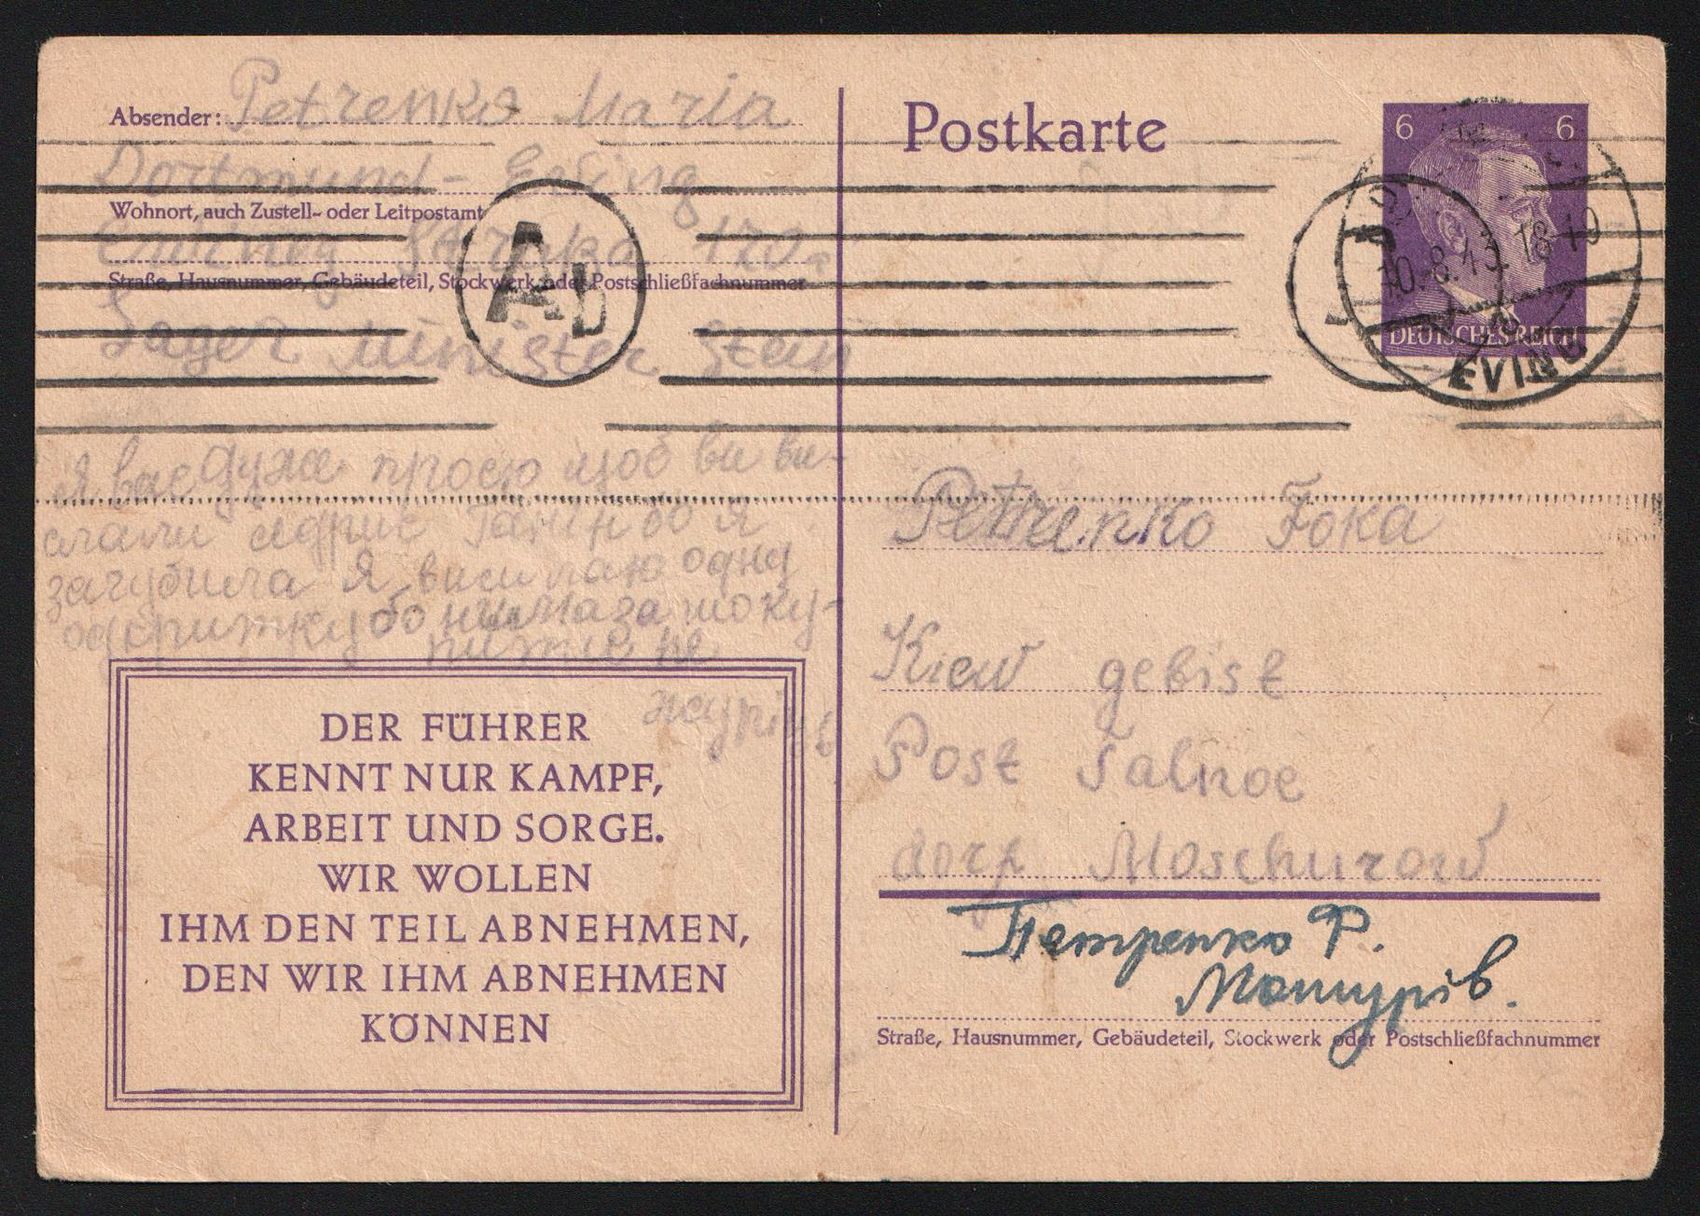 Absender: Petrenko Maria
Dortmund - Eving
Wohnort, auch Zustell- oder Leitpostamt
170a
Straße, Hausnummer, Gebäudeteil, Stockwerk oder Postschließfachnummer
Lager Minister Stein
Ab
Postkarte
6 6
10.8.43 18-19
DEUTSCHES REICH
EVING
я вас дуже прошу щоб ви ви-
слали адрис Галін бо я
загубила Я висилаю одну
одкритку бо нима за шо ку-
пити не
журіть
DER FÜHRER
KENNT NUR KAMPF,
ARBEIT UND SORGE.
WIR WOLLEN
IHM DEN TEIL ABNEHMEN,
DEN WIR IHM ABNEHMEN
KÖNNEN
Petrenko Foka
Kiew gebist
Post Talnoe
dorf Moschurow
Петренко Ф.
Мошурів.
Straße, Hausnummer, Gebäudeteil, Stockwerk oder Postschließfachnummer